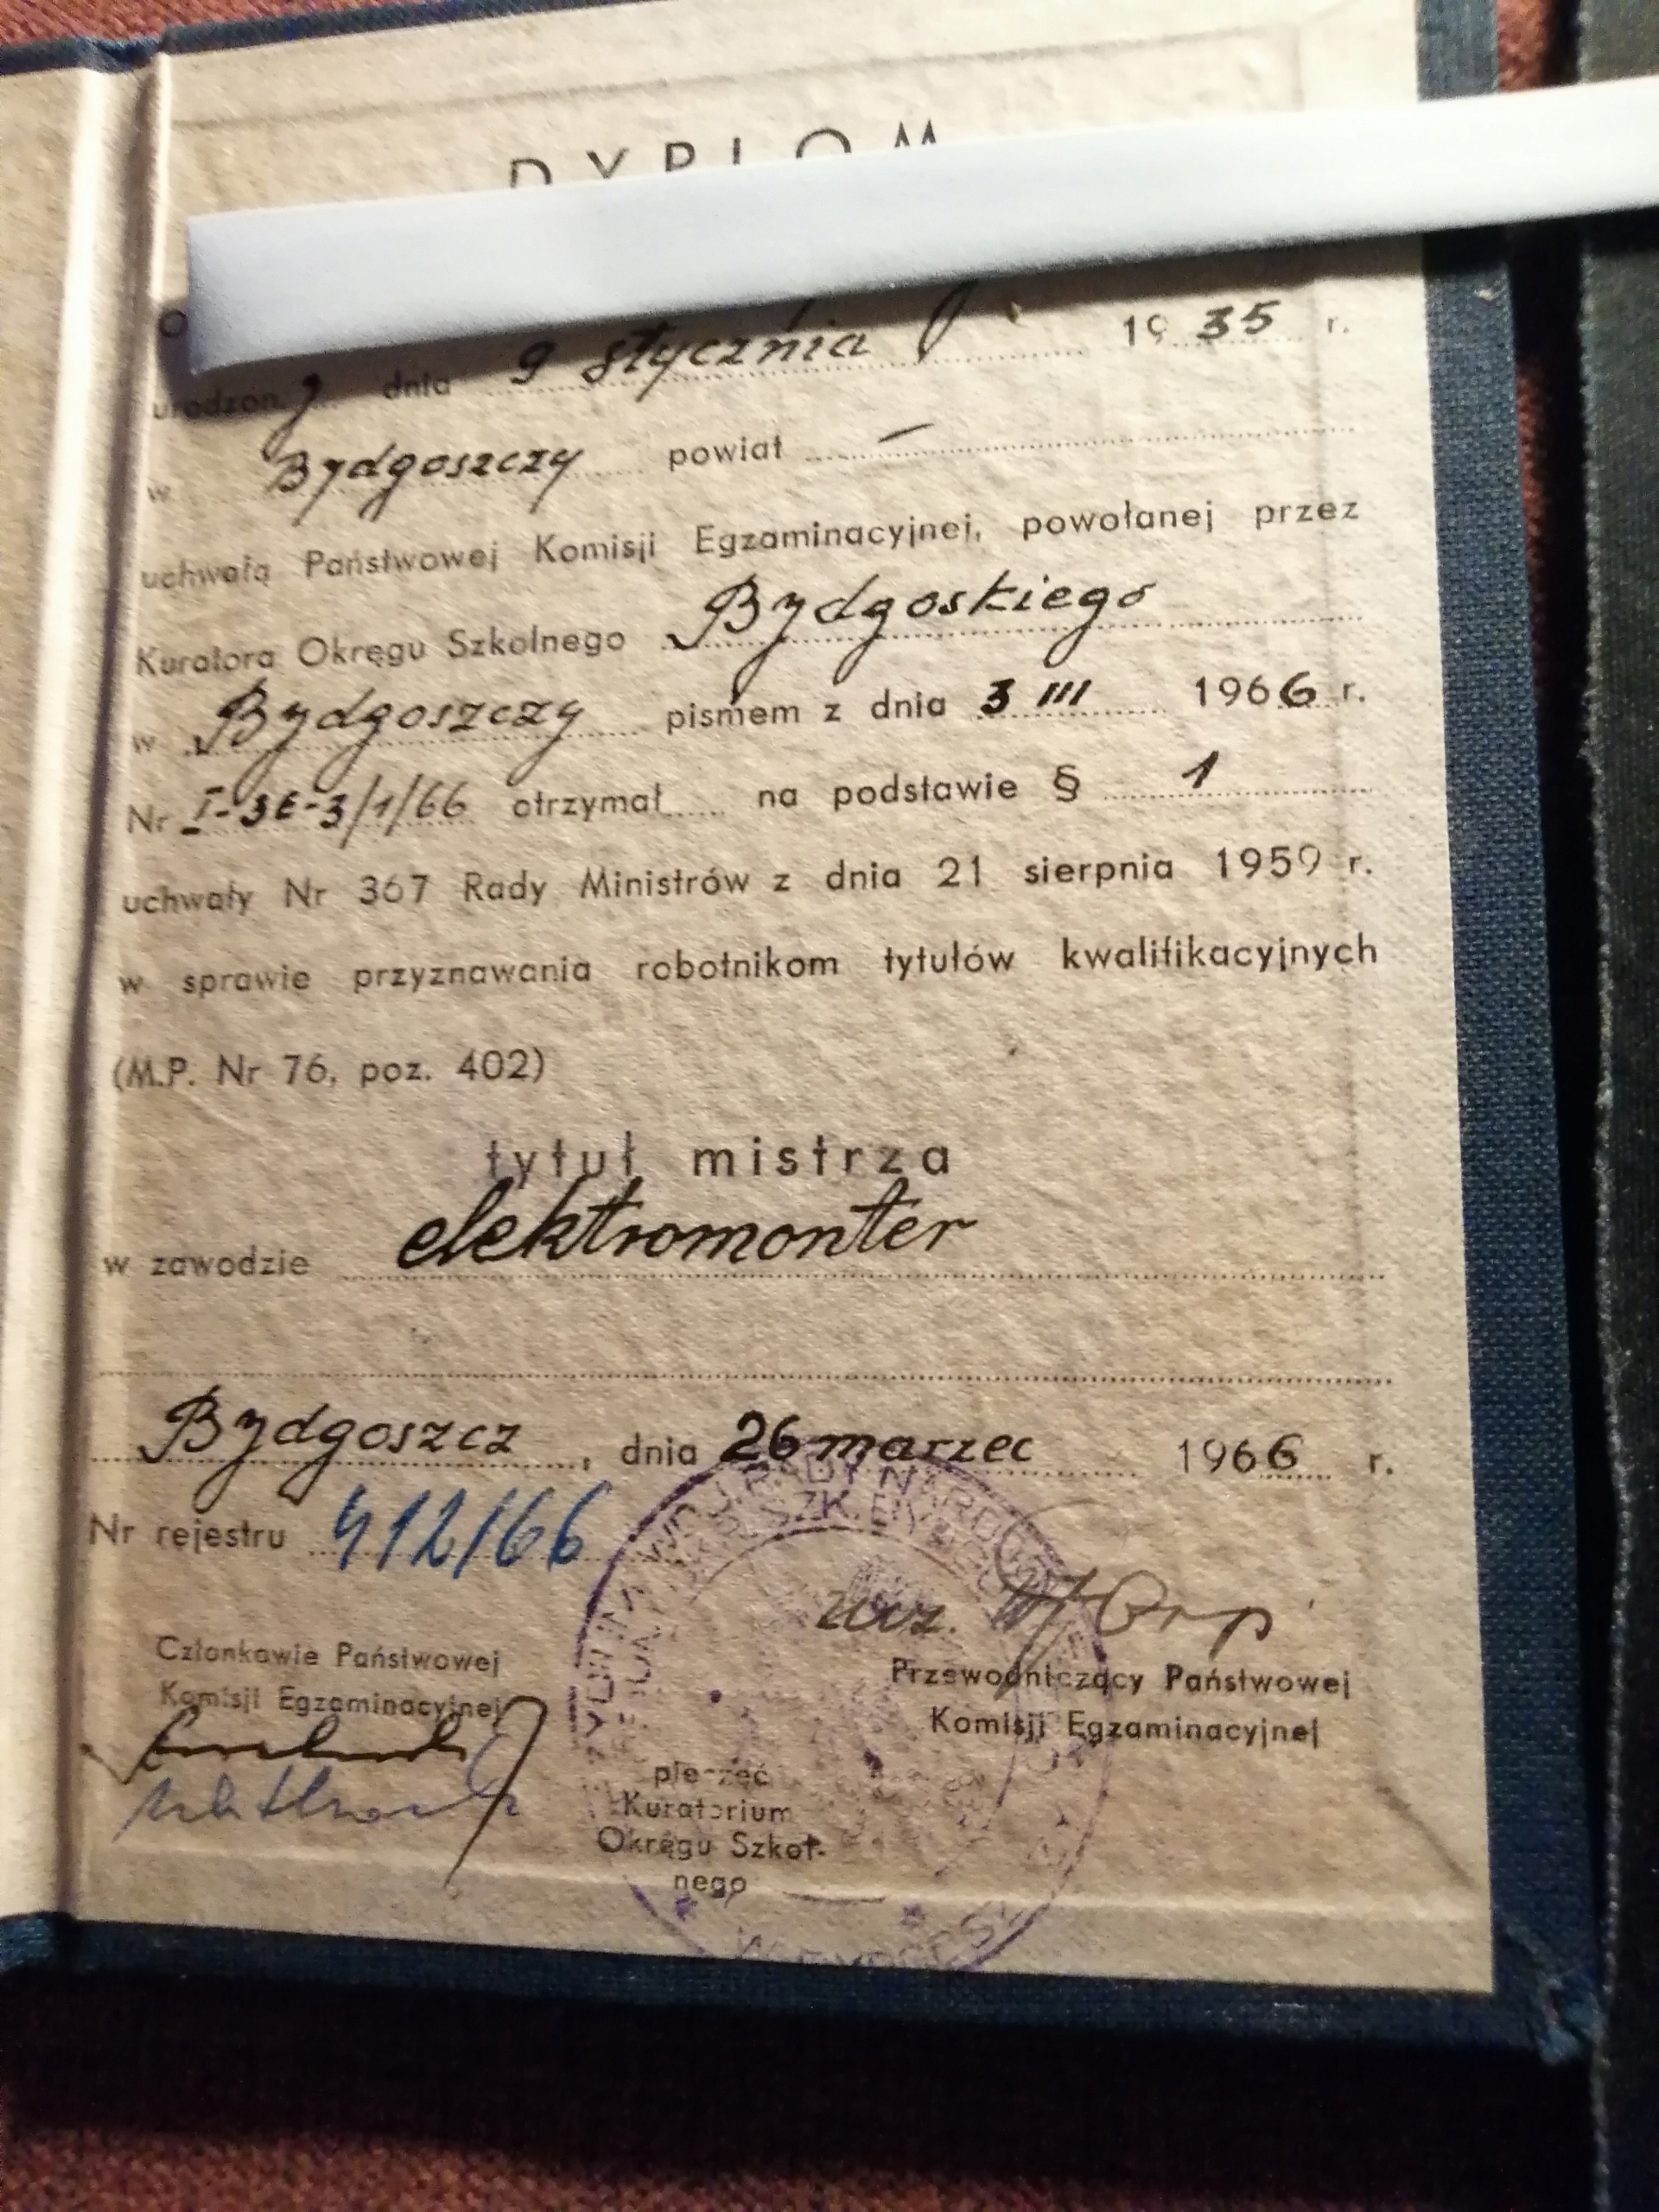 DYPLOM
urodzony dnia 9 stycznia 1935 r.
w Bydgoszczy powiat —
uchwałą Państwowej Komisji Egzaminacyjnej, powołanej przez
Kuratora Okręgu Szkolnego Bydgoskiego
w Bydgoszczy pismem z dnia 3 III 1966 r.
Nr I-SE-3/1/66 otrzymał na podstawie § 1
uchwały Nr 367 Rady Ministrów z dnia 21 sierpnia 1959 r.
w sprawie przyznawania robotnikom tytułów kwalifikacyjnych
(M.P. Nr 76, poz. 402)
tytuł mistrza
w zawodzie elektromonter
Bydgoszcz, dnia 26 marzec 1966 r.
Nr rejestru 412/66
Członkowie Państwowej
Komisji Egzaminacyjnej
Przewodniczący Państwowej
Komisji Egzaminacyjnej
pieczęć
Kuratorium
Okręgu Szkol-
nego